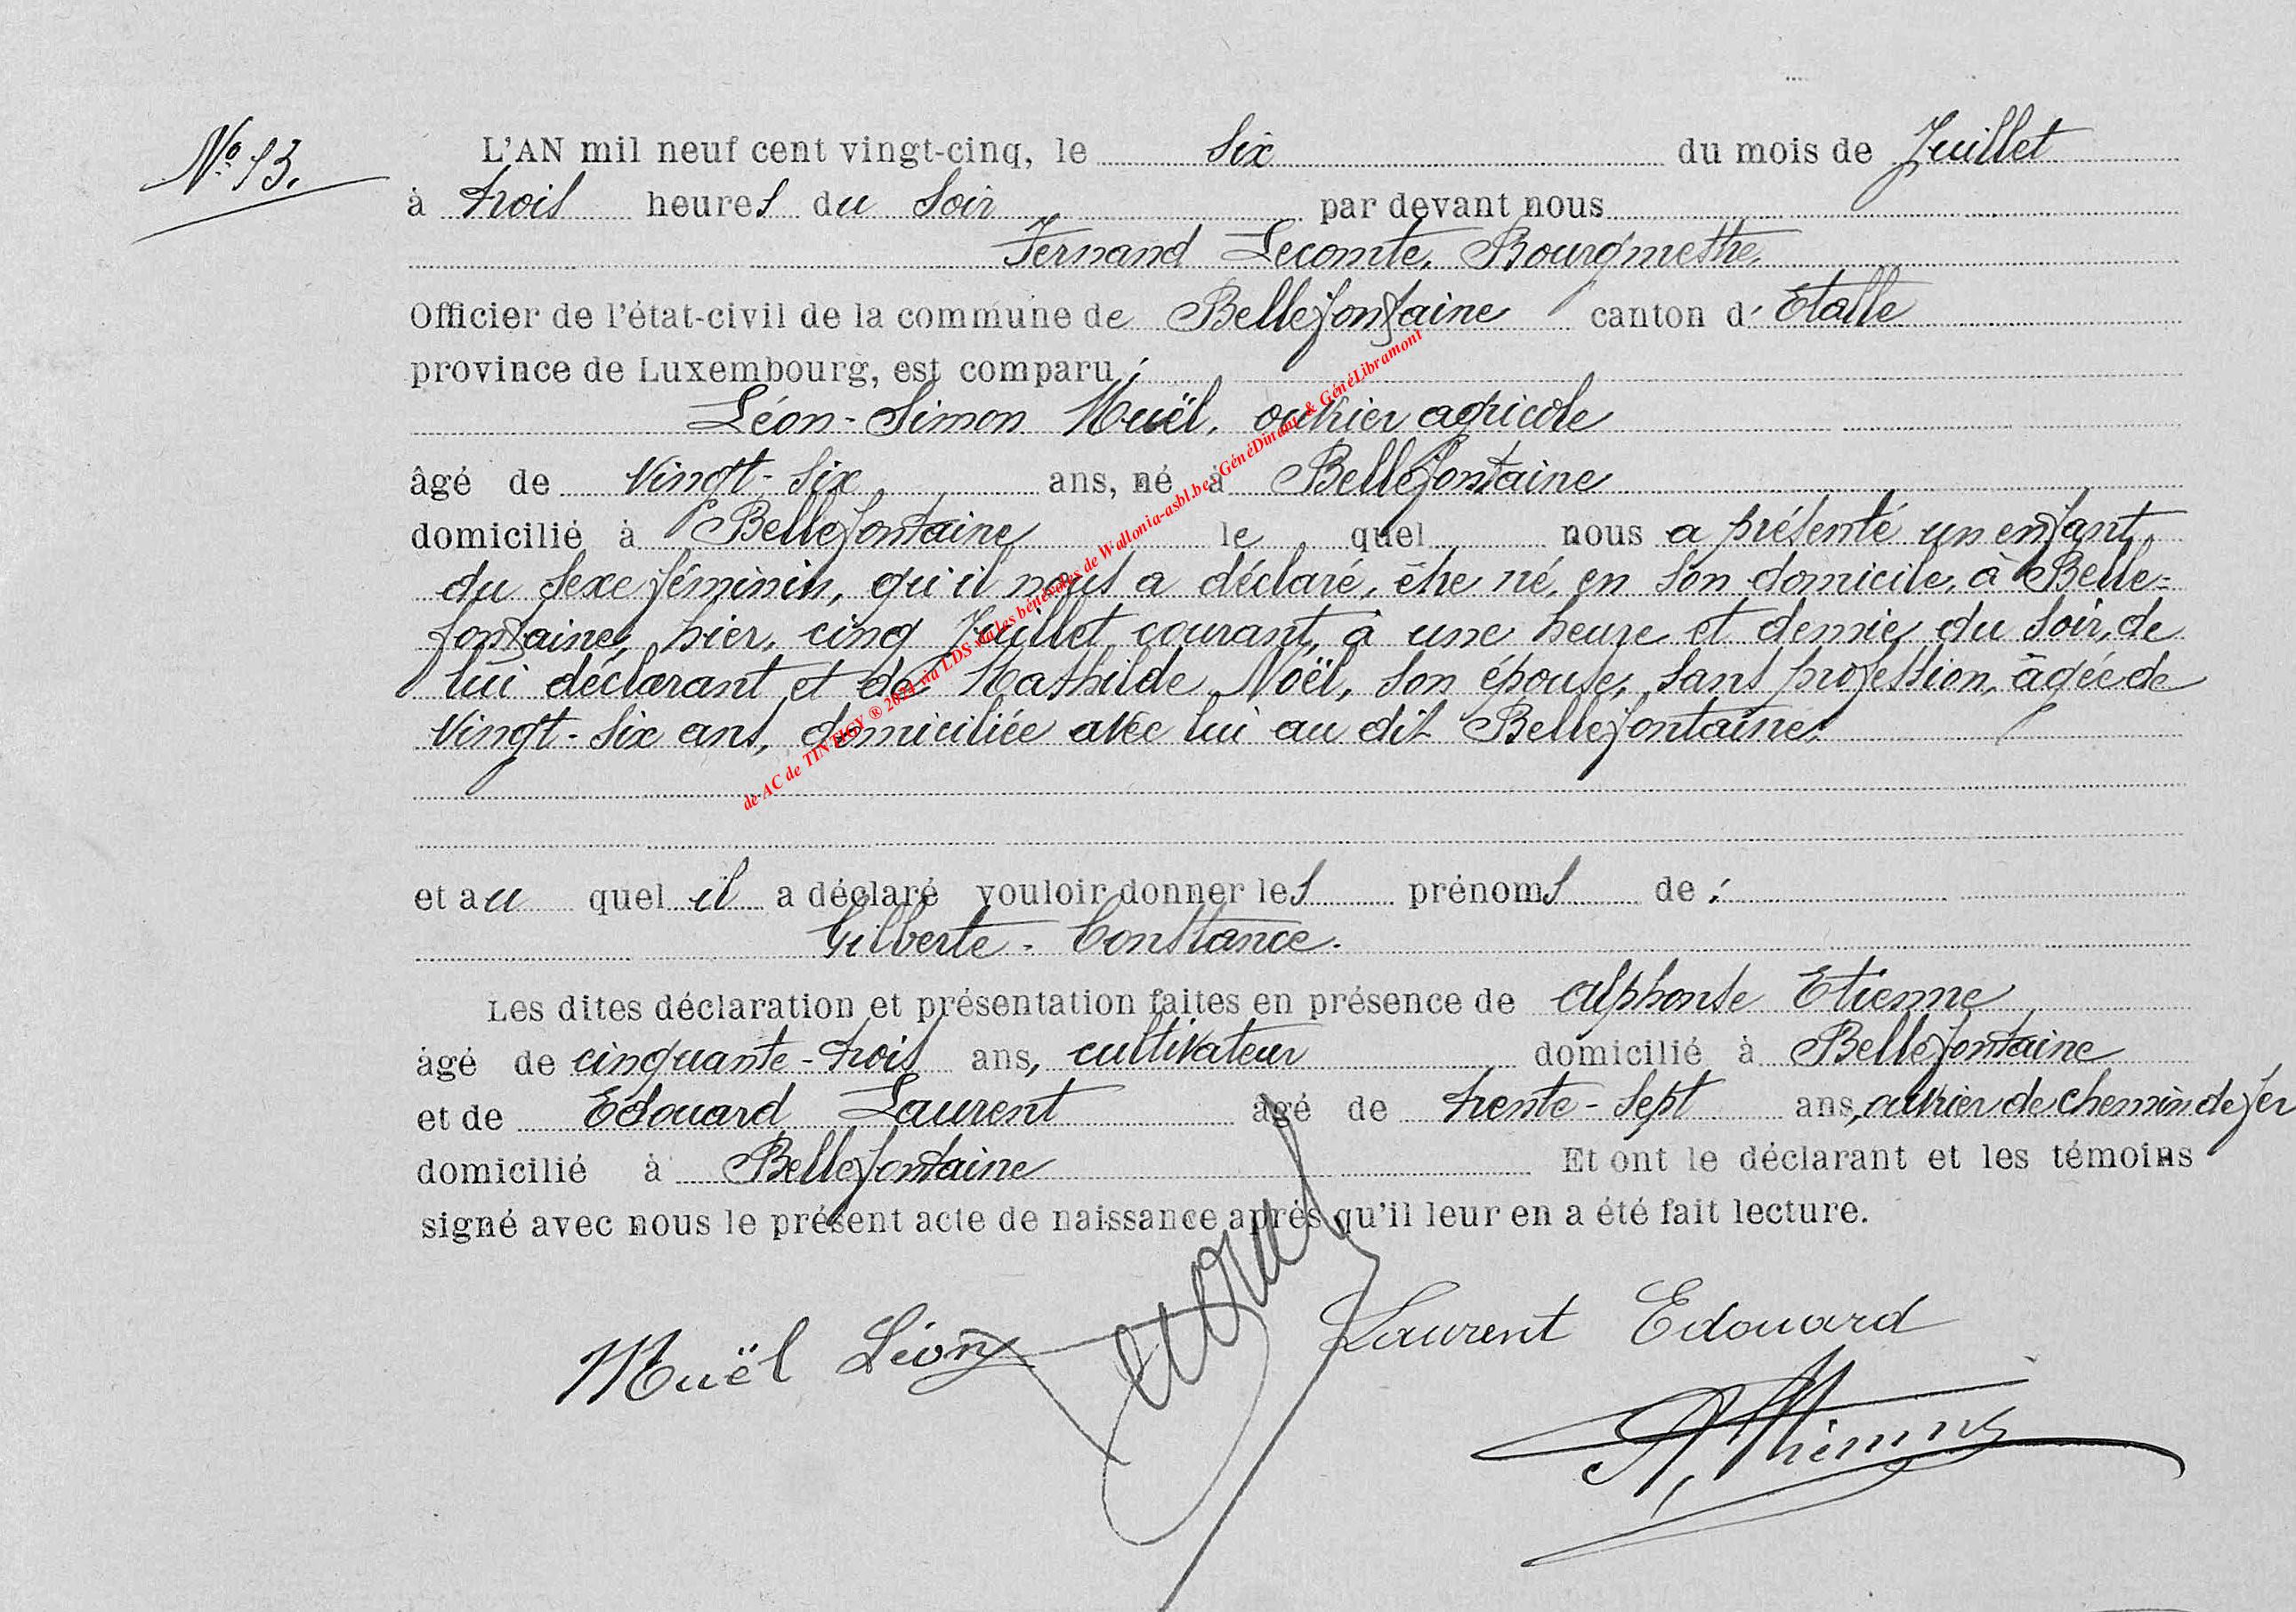 N° 13.
L'AN mil neuf cent vingt-cinq, le six du mois de Juillet
à trois heures du soir par devant nous
Fernand Lecomte, Bourgmestre,
Officier de l'état-civil de la commune de Bellefontaine canton d'Etalle
province de Luxembourg, est comparu :
Léon-Simon Muël, ouvrier agricole
âgé de vingt-six ans, né à Bellefontaine
domicilié à Bellefontaine le quel nous a présenté un enfant
du sexe féminin, qu'il nous a déclaré, être né, en son domicile, à Belle=
fontaine, hier, cinq Juillet courant, à une heure et demie du soir, de
lui déclarant et de Mathilde Noël, son épouse, sans profession, âgée de
vingt-six ans, domiciliée avec lui au dit Bellefontaine.
et au quel il a déclaré vouloir donner les prénoms de :
Gilberte - Constance.
Les dites déclaration et présentation faites en présence de Alphonse Etienne
âgé de cinquante-trois ans, cultivateur domicilié à Bellefontaine
et de Edouard Laurent âgé de trente-sept ans, ouvrier de chemin de fer
domicilié à Bellefontaine Et ont le déclarant et les témoins
signé avec nous le présent acte de naissance après qu'il leur en a été fait lecture.
Muël Léon
Laurent Edouard
de AC de TINTIGY ® 2024 via LDS via les bénévoles de Wallonia-asbl.be - GénéDinant & GénéLibramont